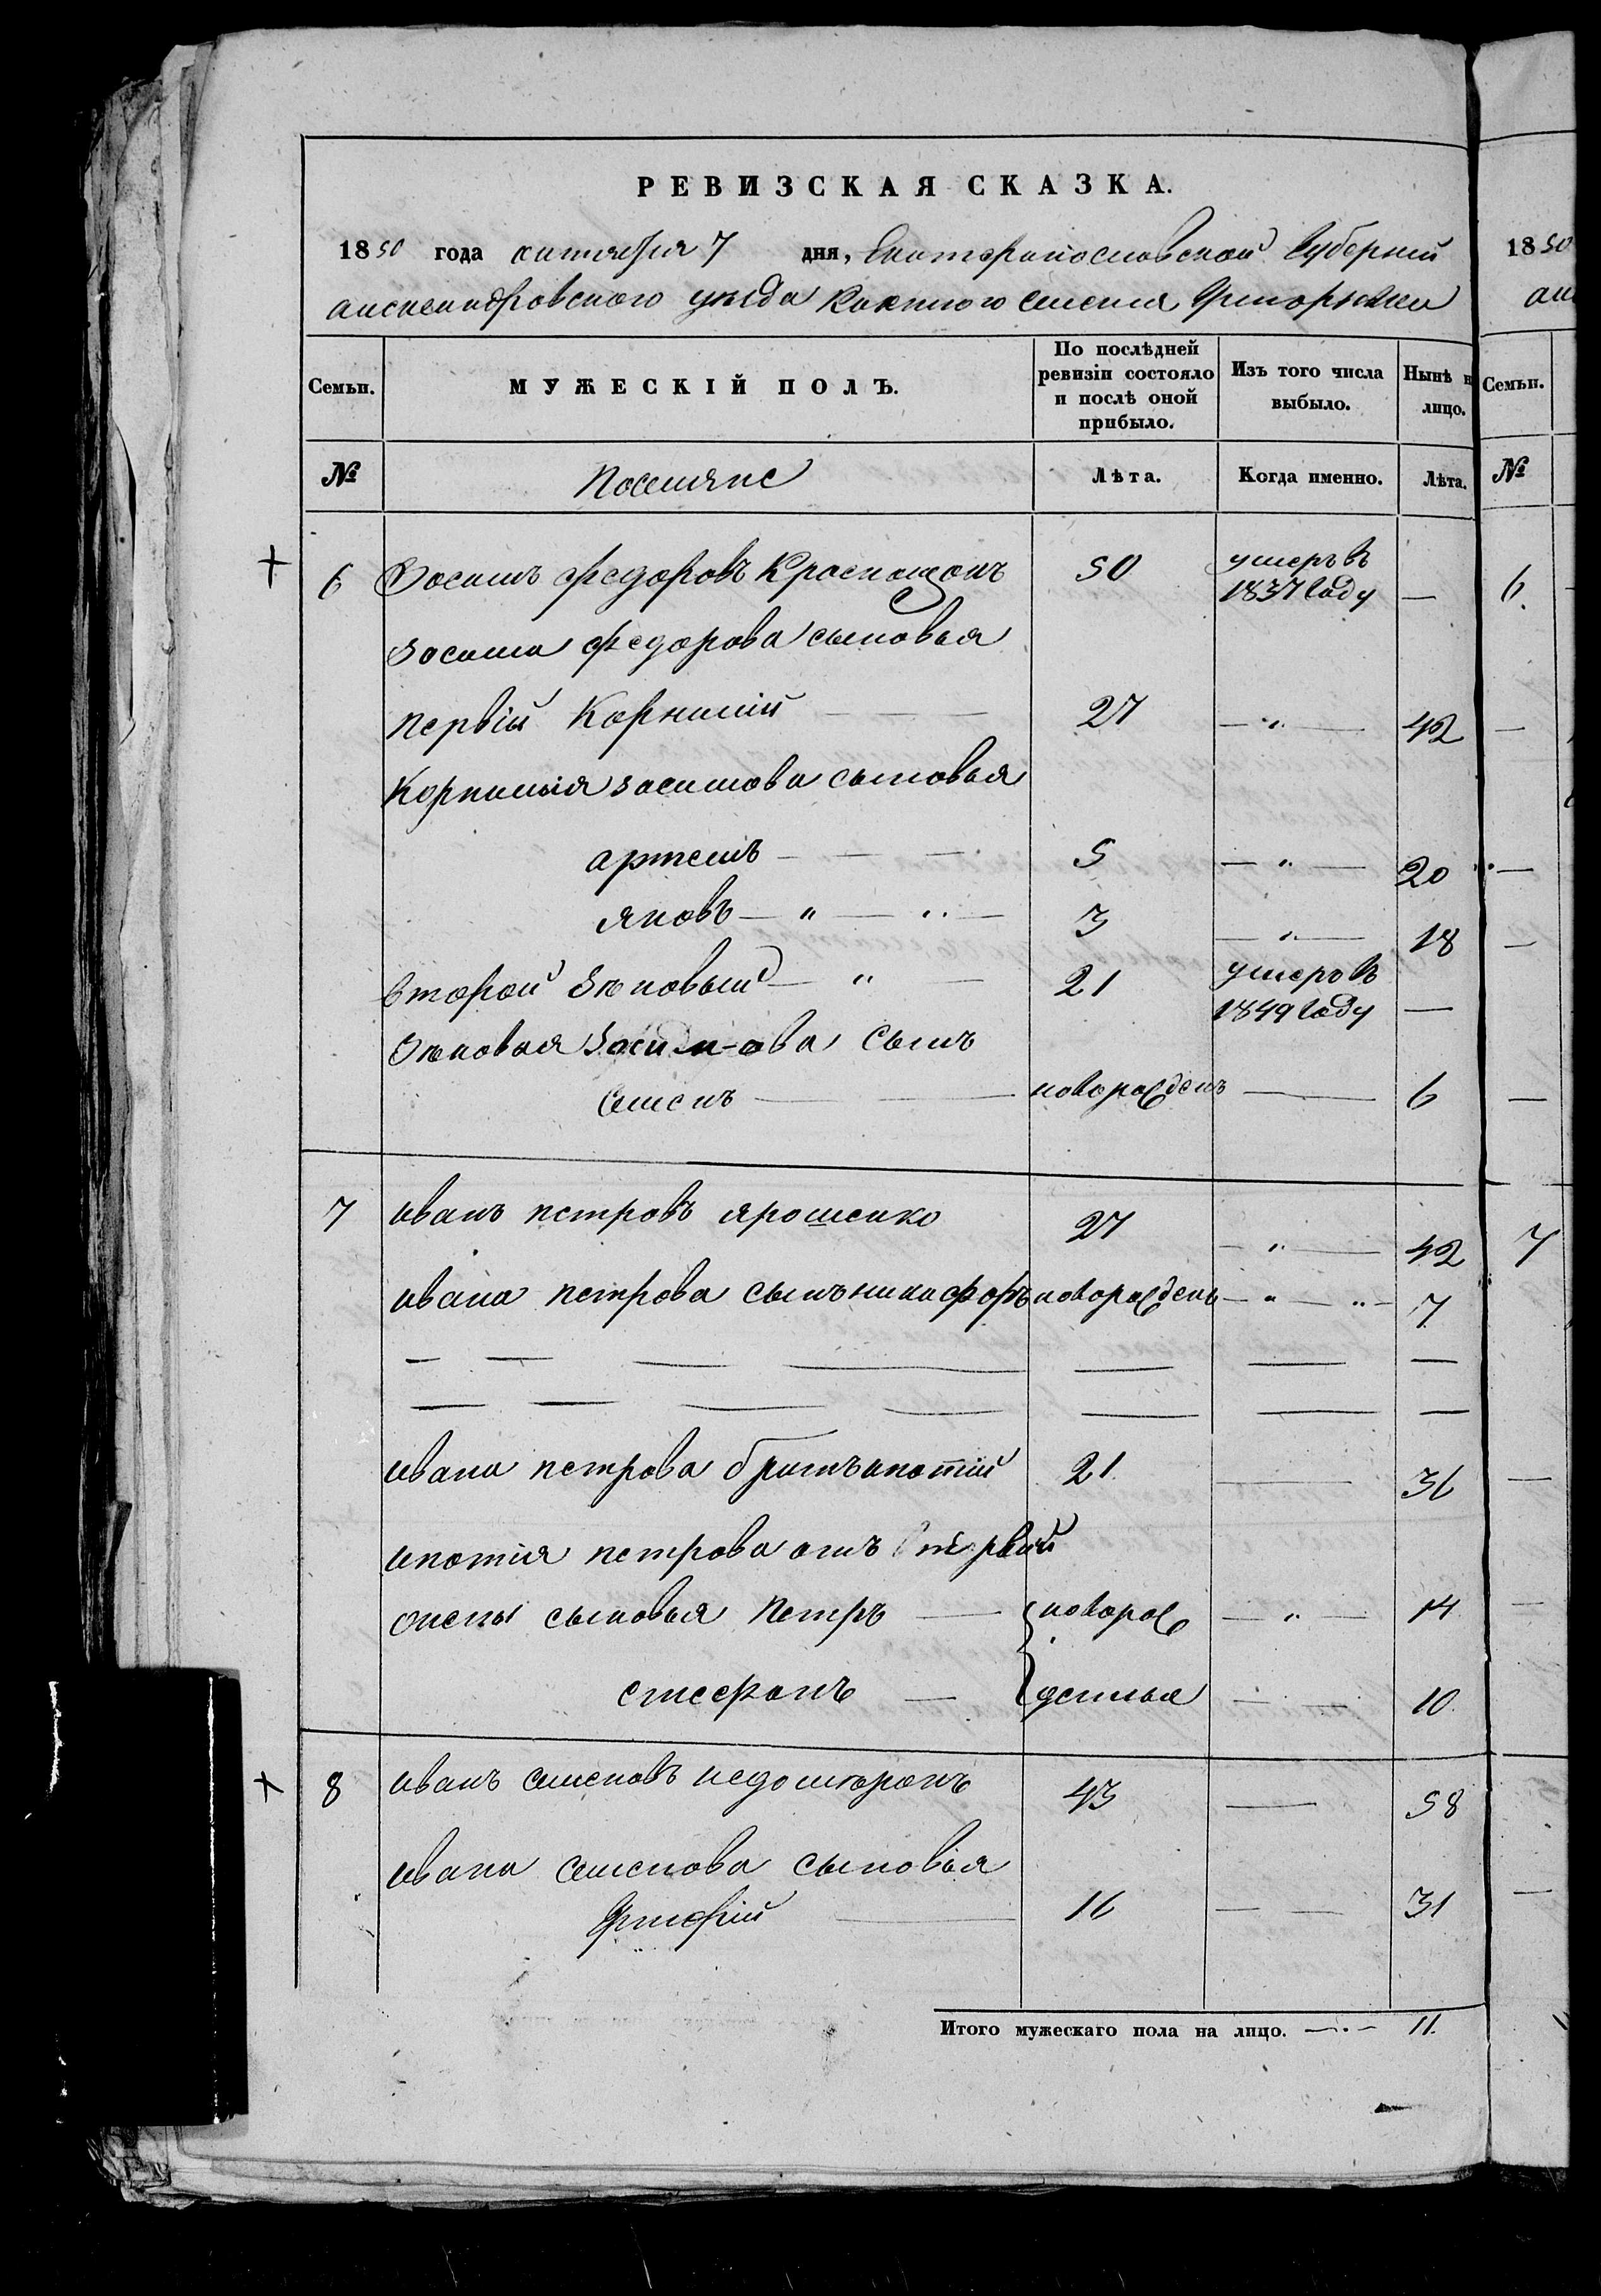 РЕВИЗСКАЯ СКАЗКА.
1850 года октября 7 дня, Екатеринославской Губернии
александровского уезда Казенного селения
Семьи. МУЖЕСКІЙ ПОЛЪ. По послѣдней ревизіи состояло и послѣ оной прибыло. Изъ того числа выбыло. Нынѣ н лицо.
№ Поселяне Лѣта. Когда именно. Лѣта.
6 Зосимъ федоровъ Краснощокъ 50 умеръ въ 1837 Году —
Зосима федорова сыновья
первій Корнилий 27 — " — 42
Корнилия зосимова сыновья
артемъ 5 — " — 20
яковъ — " — " — 3 — " — 18
второй Зѣновый — " — 21 умеръ въ 1849 Году —
Зѣновья Зосимова сынъ
Семенъ новорожденъ — 6
7 иванъ петровъ ярошенко 27 — " — 42
ивана петрова сынъ никифоръ новорожденъ — " — " — 7
ивана петрова братъ ипотій 21 — 36
ипотія петрова отъ первой
жены сыновья Петръ новорож — " — 14
стефанъ денныя — 10
8 иванъ семеновъ 43 — 58
ивана семенова сыновья
16 — — 31
Итого мужескаго пола на лицо. — 11.
1850
Семьи.
№
6.
7